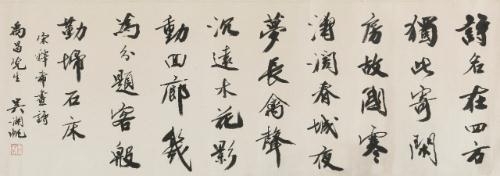 詩名在四方
獨此寄閑
房故國寒
濤闊春城夜
夢長禽聲
沉遠木花影
動回廊幾
為分題客殷
勤掃石床
宋釋希晝詩
禹昌先生 吳湖帆